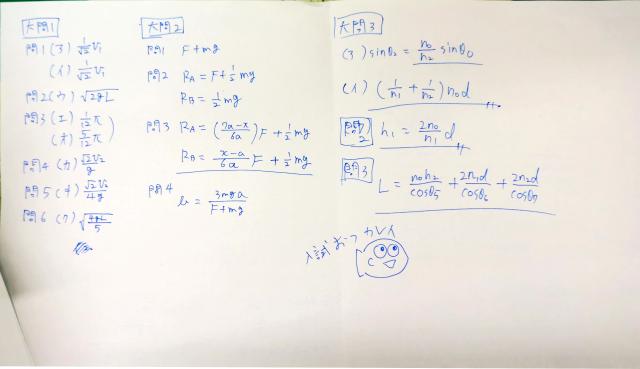 大問1
問1 (ア) 1/√2 v₁
(イ) 1/√2 v₁
問2 (ウ) √2gL
問3 (エ) 1/12 π
(オ) 5/12 π
問4 (カ) √2v₂²/g
問5 (キ) √2v₂²/4g
問6 (ク) √4gL/5
大問2
問1 F+mg
問2 R_A = F+1/2 mg
R_B = 1/2 mg
問3 R_A = (7a-x/6a)F+1/2 mg
R_B = x-a/6a F+1/2 mg
問4
h = 3mga/F+mg
大問3
(ア) sinθ₂ = n₀/n₂ sinθ₀
(イ) (1/n₁+1/n₂)n₀d
問2 h₁ = 2n₀/n₁ d
問3
L = n₀h₂/cosθ₅+2n₁d/cosθ₆+2n₂d/cosθ₇
入試おつカレイ